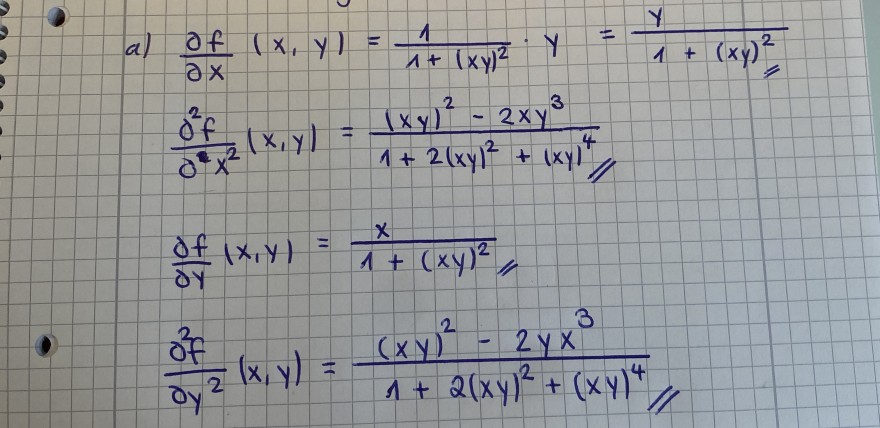 a) ∂f/∂x (x, y) = 1/(1 + (xy)²) · y = y/(1 + (xy)²)
∂²f/∂x² (x, y) = ((xy)² - 2xy³)/(1 + 2(xy)² + (xy)⁴)
∂f/∂y (x, y) = x/(1 + (xy)²)
∂²f/∂y² (x, y) = ((xy)² - 2yx³)/(1 + 2(xy)² + (xy)⁴)